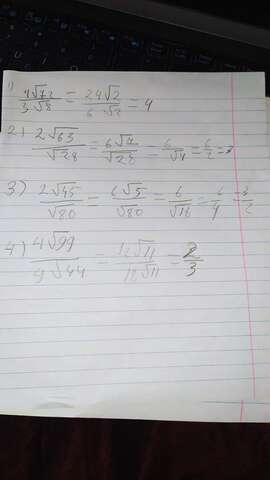 1) 4√72 / 3√8 = 24√2 / 6√2 = 4
2) 2√63 / √28 = 6√7 / √28 = 6/√4 = 6/2 = 3
3) 2√45 / √80 = 6√5 / √80 = 6/√16 = 6/4 = 3/2
4) 4√99 / 9√44 = 12√11 / 18√11 = 2/3